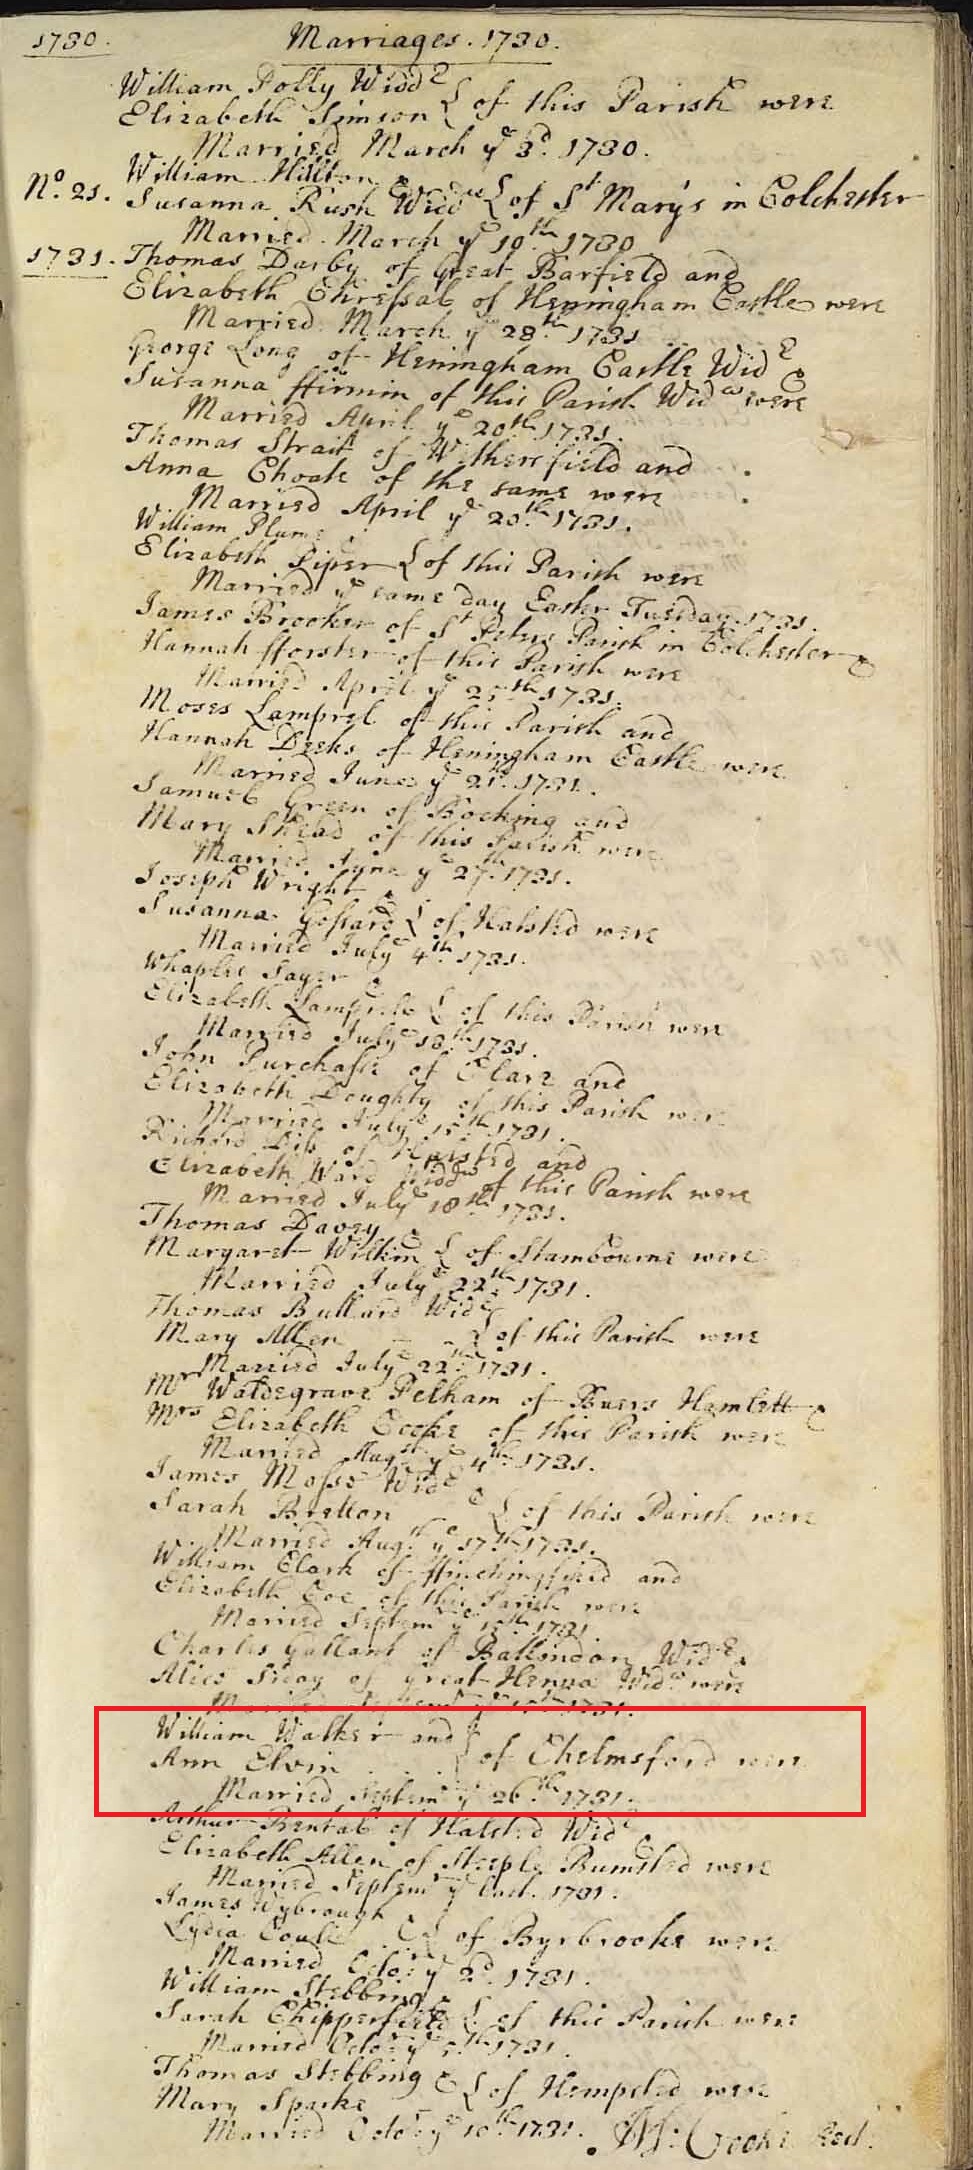 1730.
Marriages. 1730.
William Polly Widd
Elizabeth Simson of this Parish were
Married March ye 3d. 1730.
William Hilton
No. 21. Susanna Rush Widdw of St Mary's in Colchester
Married March ye 10th 1730
1731. Thomas Darby of Great Barfield and
Elizabeth of Heningham Castle were
Married March ye 28th 1731
George Long of Heningham Castle Wid
Susanna ffirmin of this Parish Widw were
Married April ye 20th 1731.
Thomas Strait of Witherefield and
Anna Choak of the same were
Married April ye 20th 1731.
William Plum
Elizabeth Piper of this Parish were
Married ye same day Easter Tuesday. 1731.
James Brooker of St Peters Parish in Colchester &
Hannah fforster of this Parish were
Married April ye 25th 1731.
Moses Lamprel of this Parish and
Hannah Deeks of Heningham Castle were
Married June ye 21st. 1731.
Samuel Green of Bocking and
Mary of this Parish were
Married June ye 27th. 1731.
Joseph Wright &
Susanna Gossard of Halsted were
Married July 4th. 1731.
Whaples Sayer &
Elizabeth of this Parish were
Married July 13th 1731.
John Purchasse of Clare and
Elizabeth Doughty of this Parish were
Married July 15th 1731.
Richard of Halsted and
Elizabeth Ward Widdw of this Parish were
Married July 18th 1731.
Thomas Davey &
Margaret Wilkin of Stambourne were
Married July 22th 1731.
Thomas Bullard Wid &
Mary Allen of this Parish were
Married July 22th 1731.
Mr Waldegrave Pelham of Buers Hamlett &
Mrs Elizabeth Cooke of this Parish were
Married Augst ye 4th. 1731.
James Mosse Wid &
Sarah Bretton of this Parish were
Married Augst ye 17th 1731.
William Clark of ffinchingfield and
Elizabeth Coe of this Parish were
Married Septemr ye 1731
Charles Gallant of Ballindon Widr &
Alice of great Henna Widw were
Married Septemr ye 1731.
William Walker and
Ann Elvin of Chelmsford were
Married Septemr ye 26th 1731.
Arthur Bental of Halsted Wid &
Elizabeth Allen of Steeple Bumsted were
Married Septemr ye last. 1731.
James Wybrough &
Lydia of Byrbrooke were
Married Octor ye 2d. 1731.
William Stebbing &
Sarah Chipperfield of this Parish were
Married Octor ye 5th 1731.
Thomas Stebbing &
Mary Sparke of Hempsted were
Married Octor ye 10th 1731. Cooke Rect.